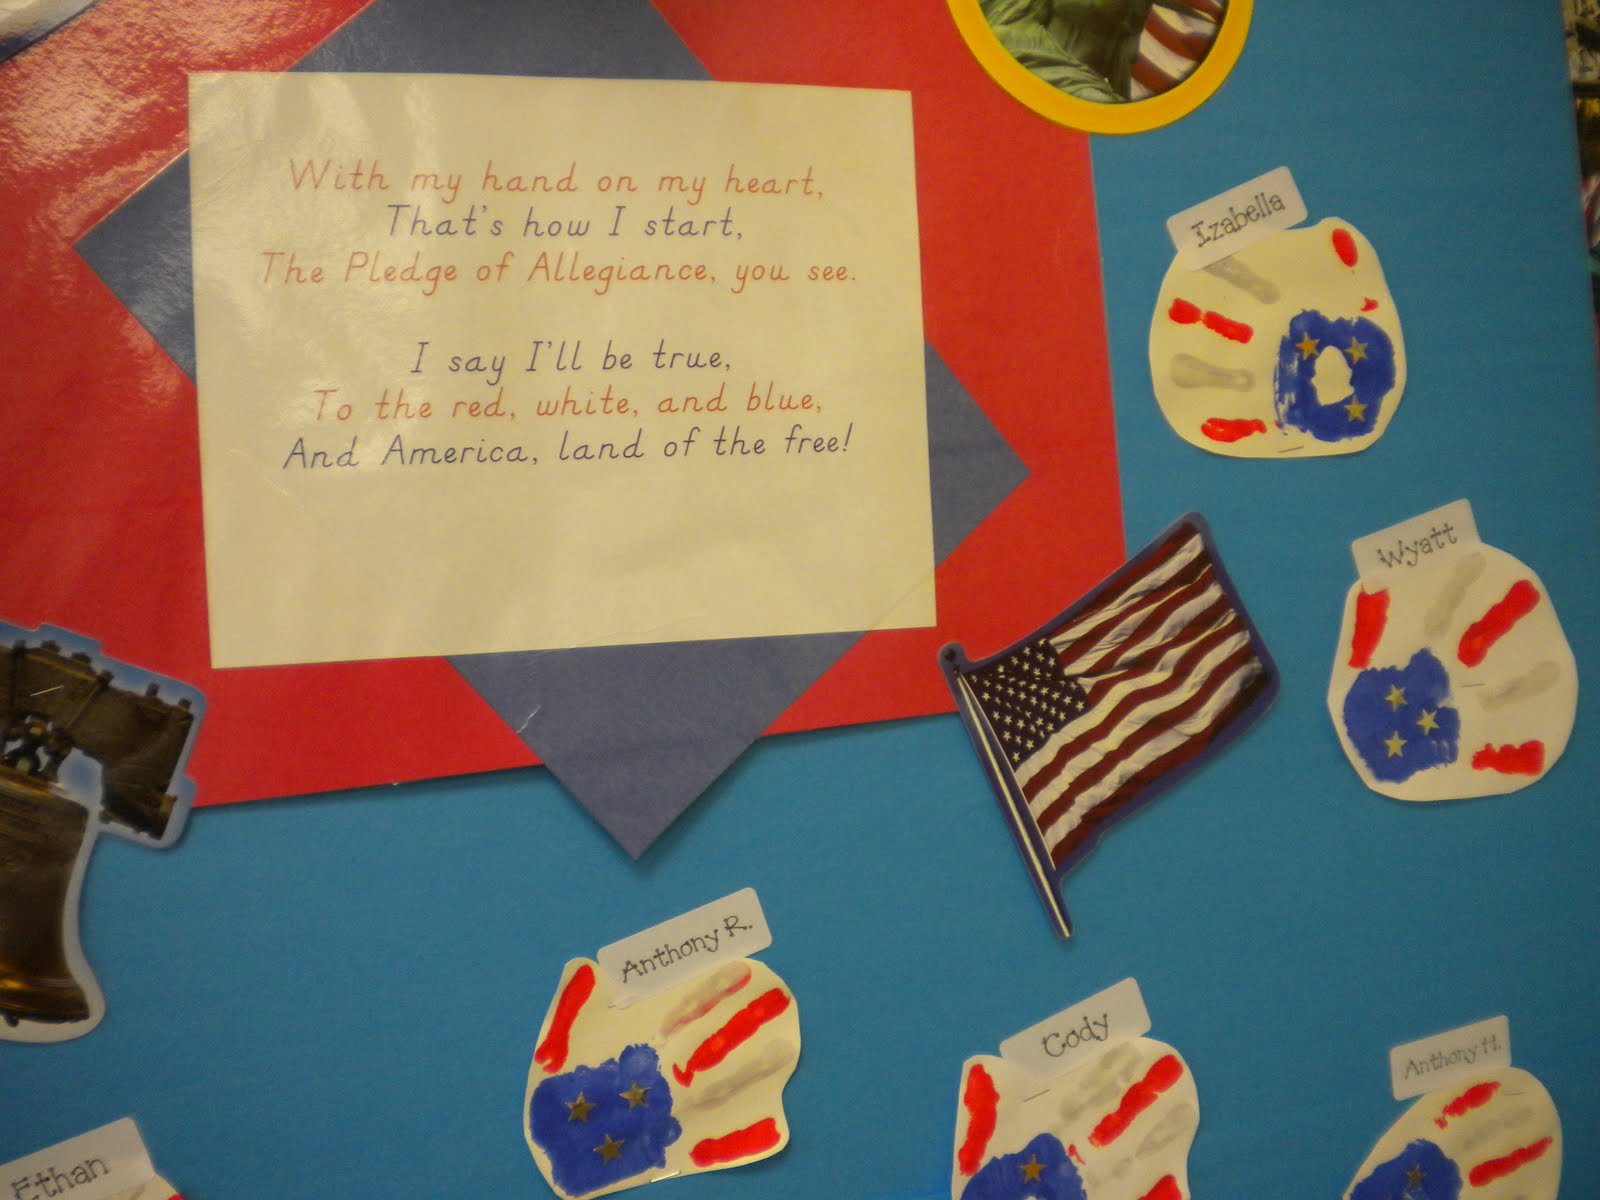 With my hand on my heart,
That's how I start,
The Pledge of Allegiance, you see.
I say I'll be true,
To the red, white, and blue,
And America, land of the free!
Izabella
Wyatt
Anthony R.
Cody
Anthony H.
Ethan